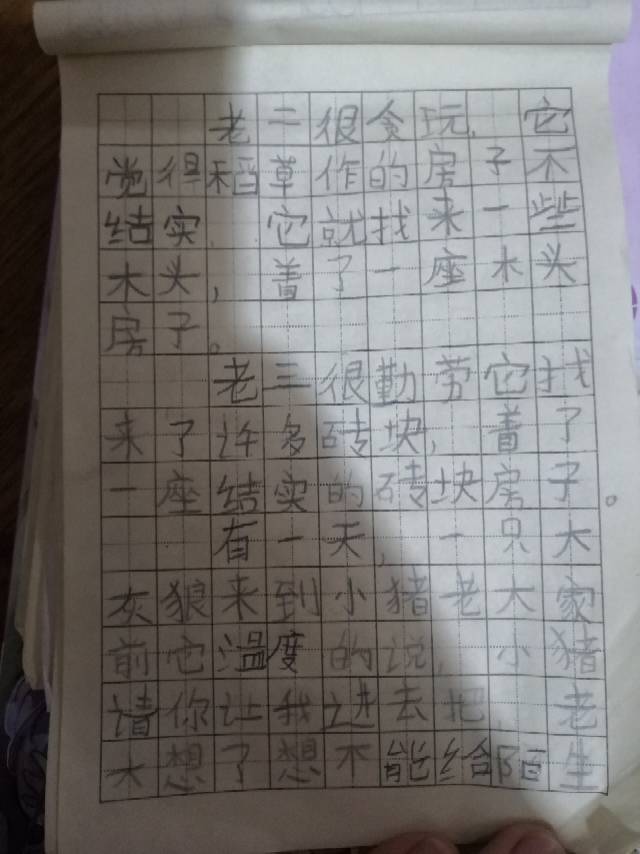 老二很贪玩,它
觉得稻草作的房子不
结实,它就找来一些
木头,着了一座木头
房子。
老三很勤劳它找
来了许多砖块,着了
一座结实的砖块房子。
有一天,一只大
灰狼来到小猪老大家
前它温度的说,小猪
请你让我进去把,老
大想了想不能给陌生